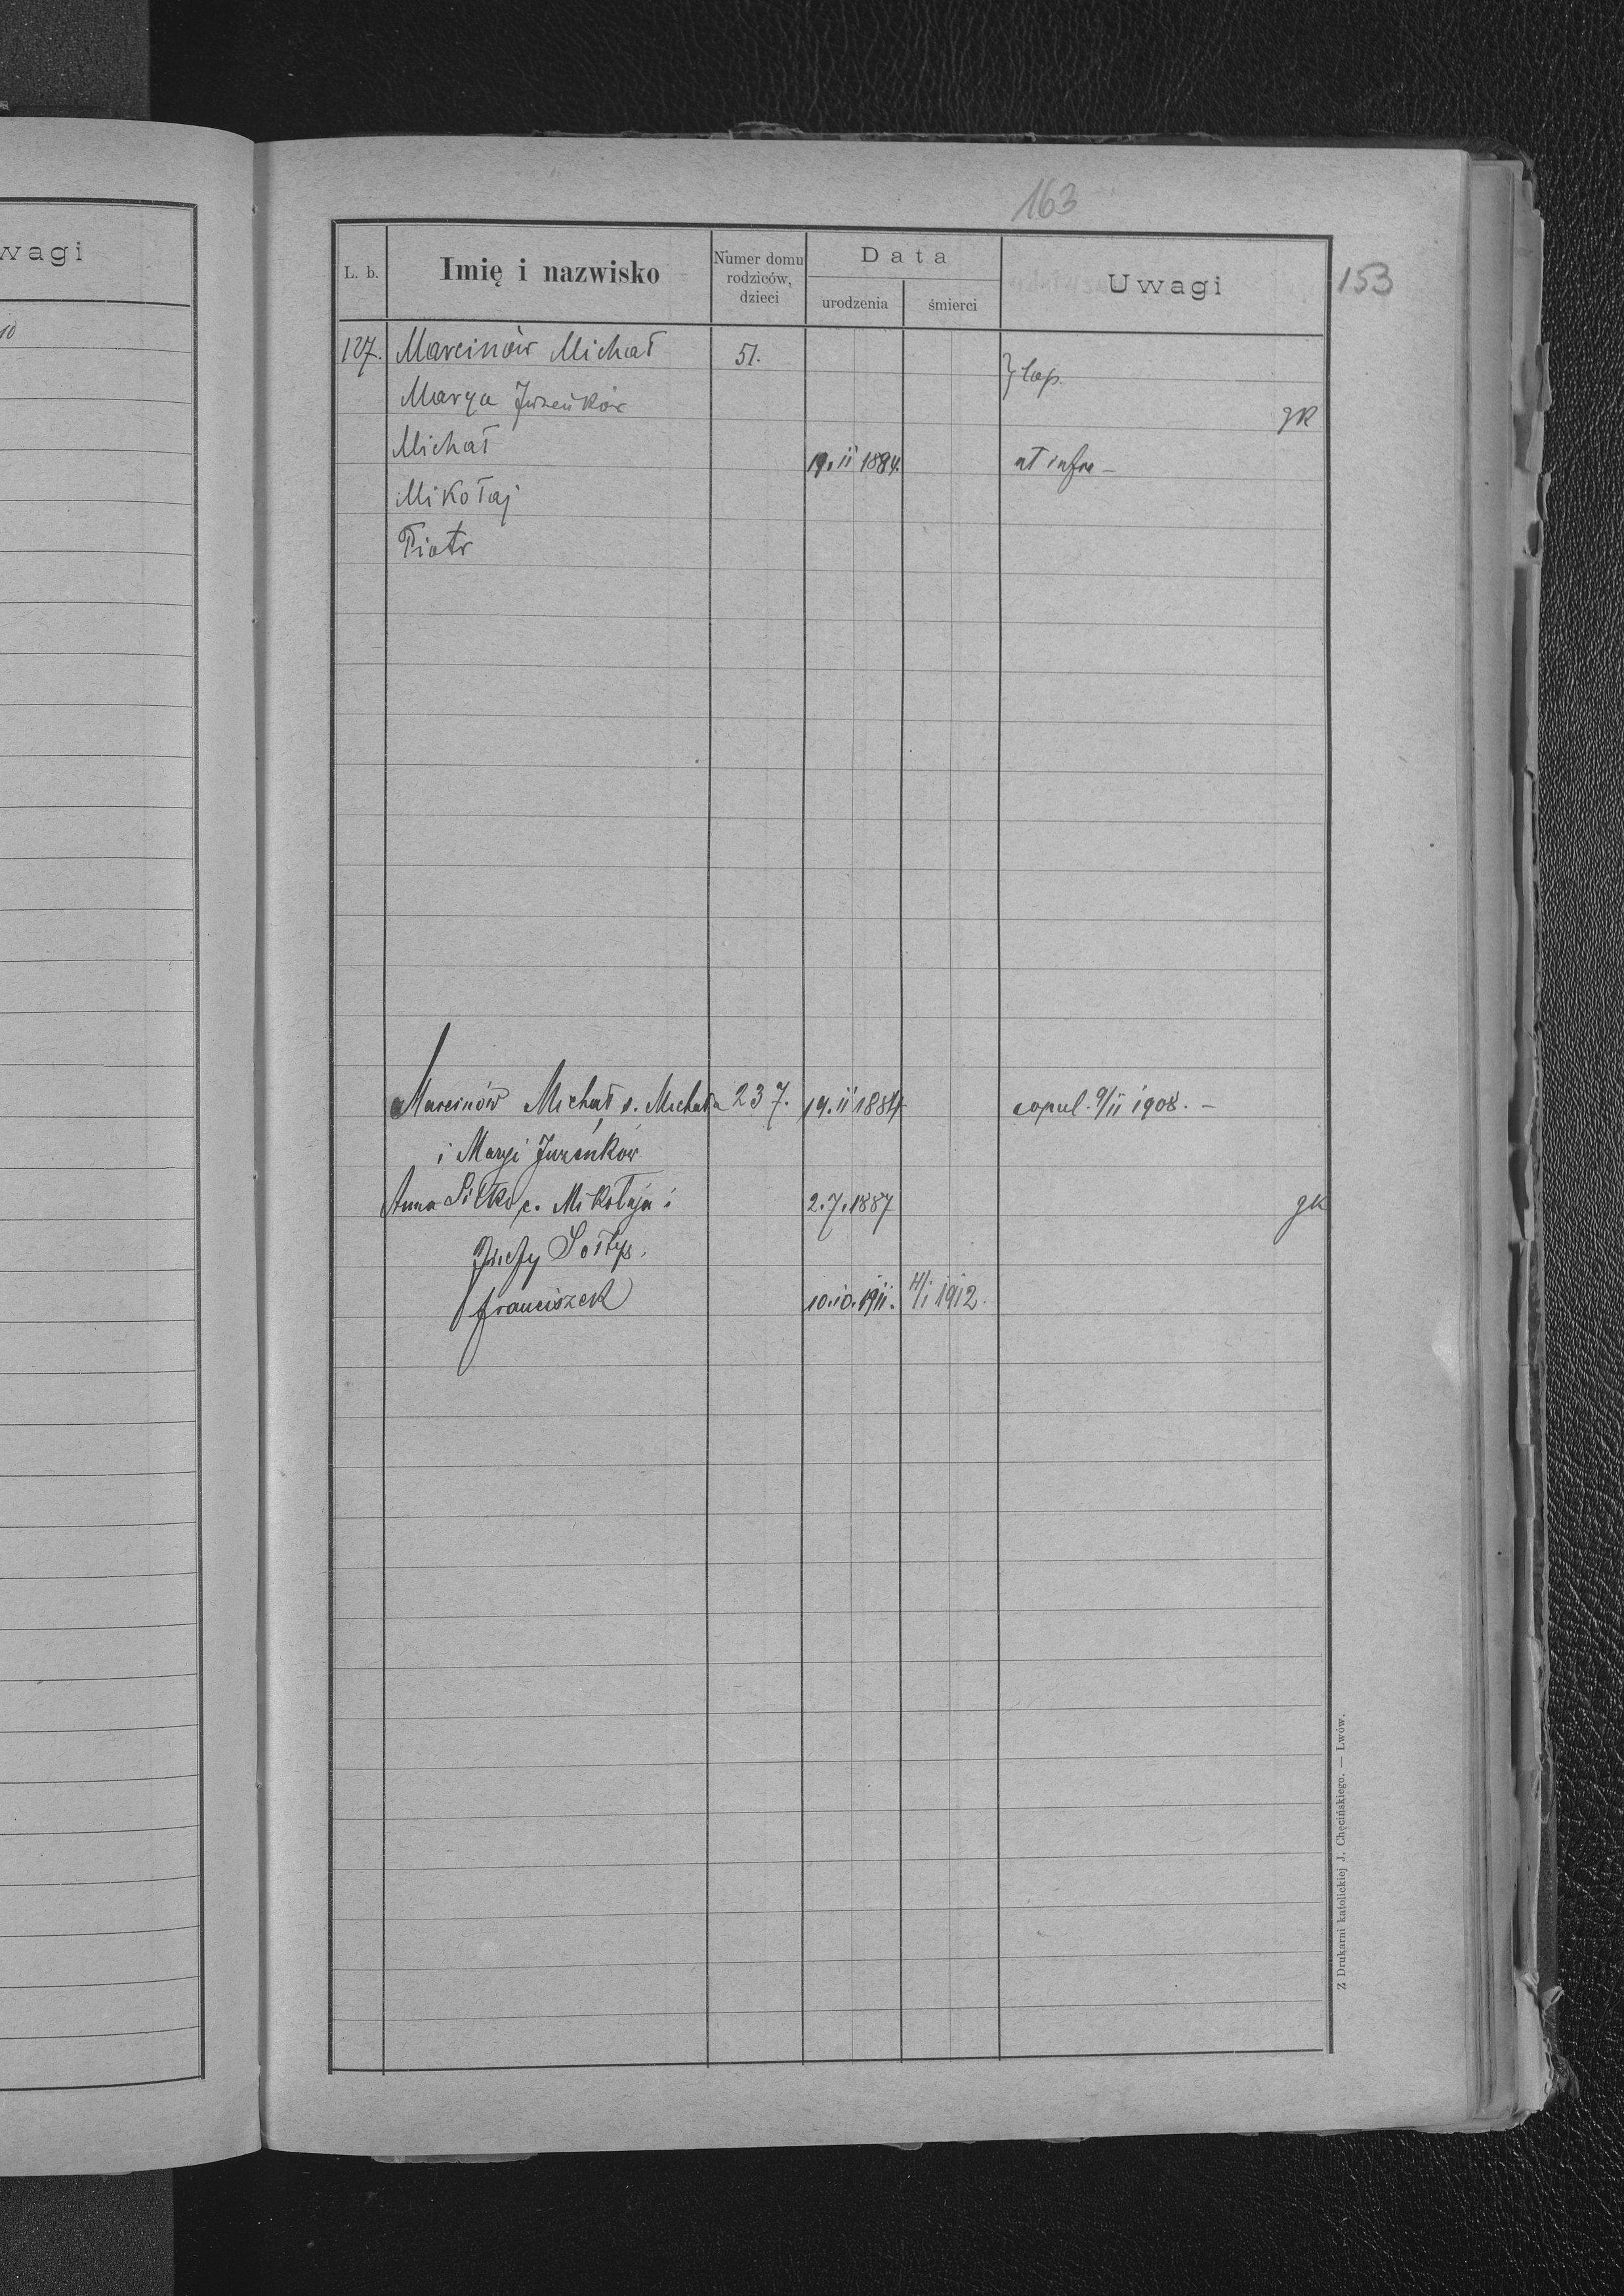 163
wagi
10
L. b.
Imię i nazwisko
Numer domu rodziców, dzieci
Data
urodzenia
śmierci
Uwagi
153
127. Marcinów Michał 51. } cop.
Marya Jureńków gk
Michał 19. ii 1884. ut infra –
Mikołaj
Piotr
Marcinów Michał s. Michała 237. 19. ii 1884 copul. 9/ii 1908. –
i Maryi Jureńków
Anna Sitko c. Mikołaja i 2. 7. 1887 gk
Józefy Sołtys.
Franciszek 10.10.1911. 4/i 1912.
Z Drukarni katolickiej J. Chęcińskiego. — Lwów.